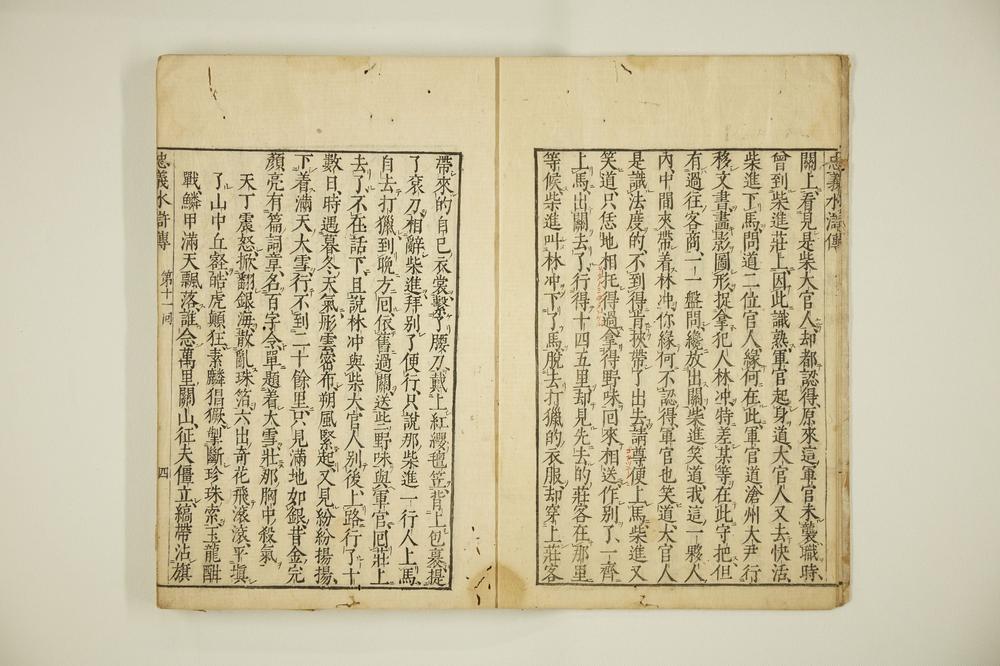 忠義水滸傳
關上看見是柴大官人却都認得原來這軍官未襲職時
曾到柴進莊上因此識熟軍官起身道大官人又去快活
柴進下馬問道二位官人緣何在此軍官道滄州大尹行
移文書畫影圖形捉拿犯人林冲特差某等在此守把但
有過往客商一一盤問纔放出關柴進笑道我這一夥人
內中間夾帶着林冲你緣何不認得軍官也笑道大官人
是識法度的不到得肯挾帶了出去請尊便上馬柴進又
笑道只恁地相托得過拿得野味回來相送作別了一齊
上馬出關去了行得十四五里却見先去的莊客在那里
等候柴進叫林冲下了馬脫去打獵的衣服却穿上莊客
帶來的自己衣裳繫了腰刀戴上紅纓氊笠背上包裹提
了袞刀相辭柴進拜別了便行只說那柴進一行人上馬
自去打獵到晚方回依舊過關送些野味與軍官回莊上
去了不在話下且說林冲與柴大官人別後上路行了十
數日時遇暮冬天氣彤雲密布朔風緊起又見紛紛揚揚
下着滿天大雪行不到二十餘里只見滿地如銀昔金完
顏亮有篇詞章名百字令單題着大雪壯那胸中殺氣
天丁震怒掀翻銀海散亂珠箔六出奇花飛滾滾平塡
了山中丘壑皓虎顛狂素麟猖獗掣斷珍珠索玉龍酣
戰鱗甲滿天飄落誰念萬里關山征夫僵立縞帶沾旗
忠義水滸傳 第十一回 四